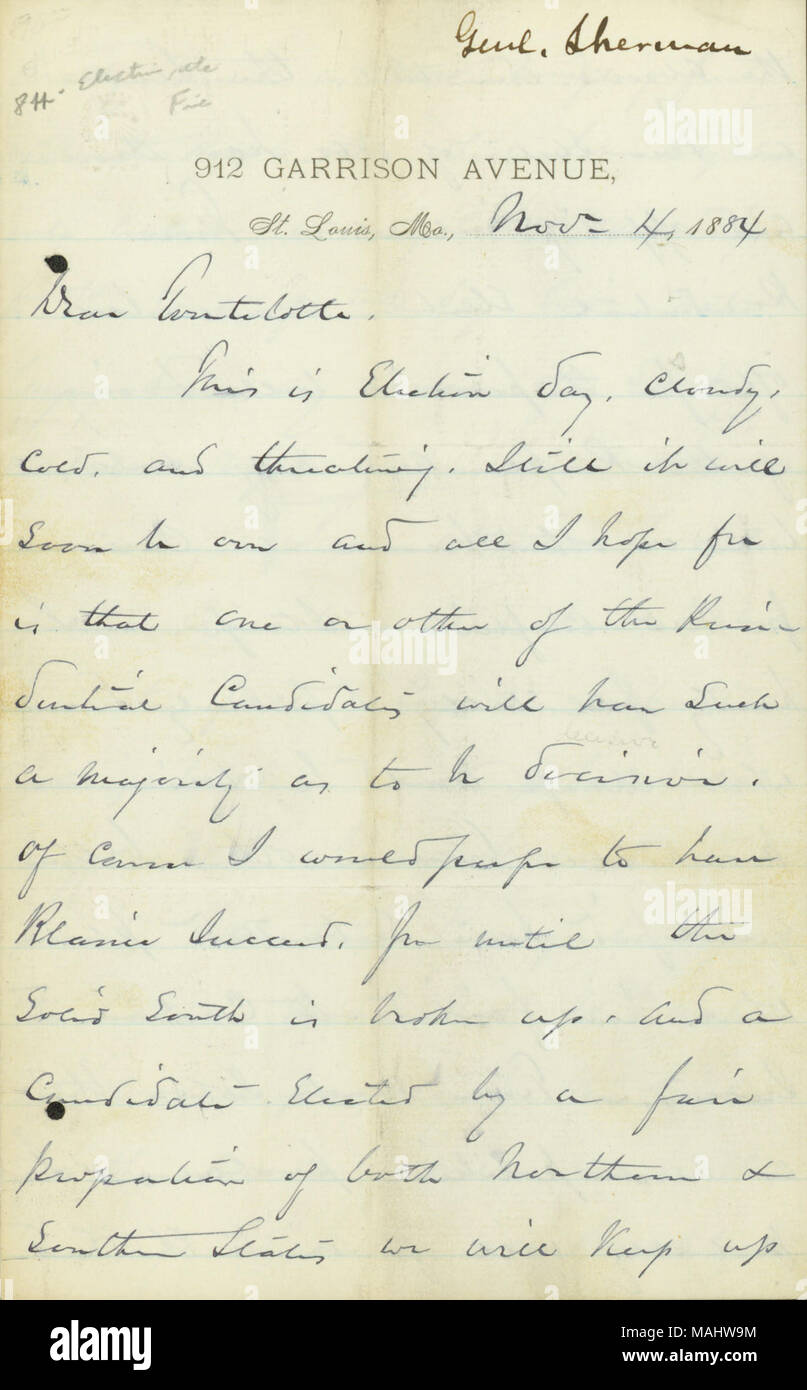 Genl. Sherman
84. Election, etc
File
912 GARRISON AVENUE,
St. Louis, Mo., Nov- 4, 1884
Dear
This is Election day, Cloudy,
Cold, and threatening. Still it will
soon be over and all I hope for
is that one or other of the Presi-
dential Candidates will have such
a majority as to be decisive.
Of course I would prefer to have
Blaine succeed, for until the
Solid South is broken up, and a
Candidate Elected by a fair
proportion of both Northern &
Southern States we will keep up
alamy
alamy
alamy
alamy
alamy
Image ID: MAHW9M
www.alamy.com